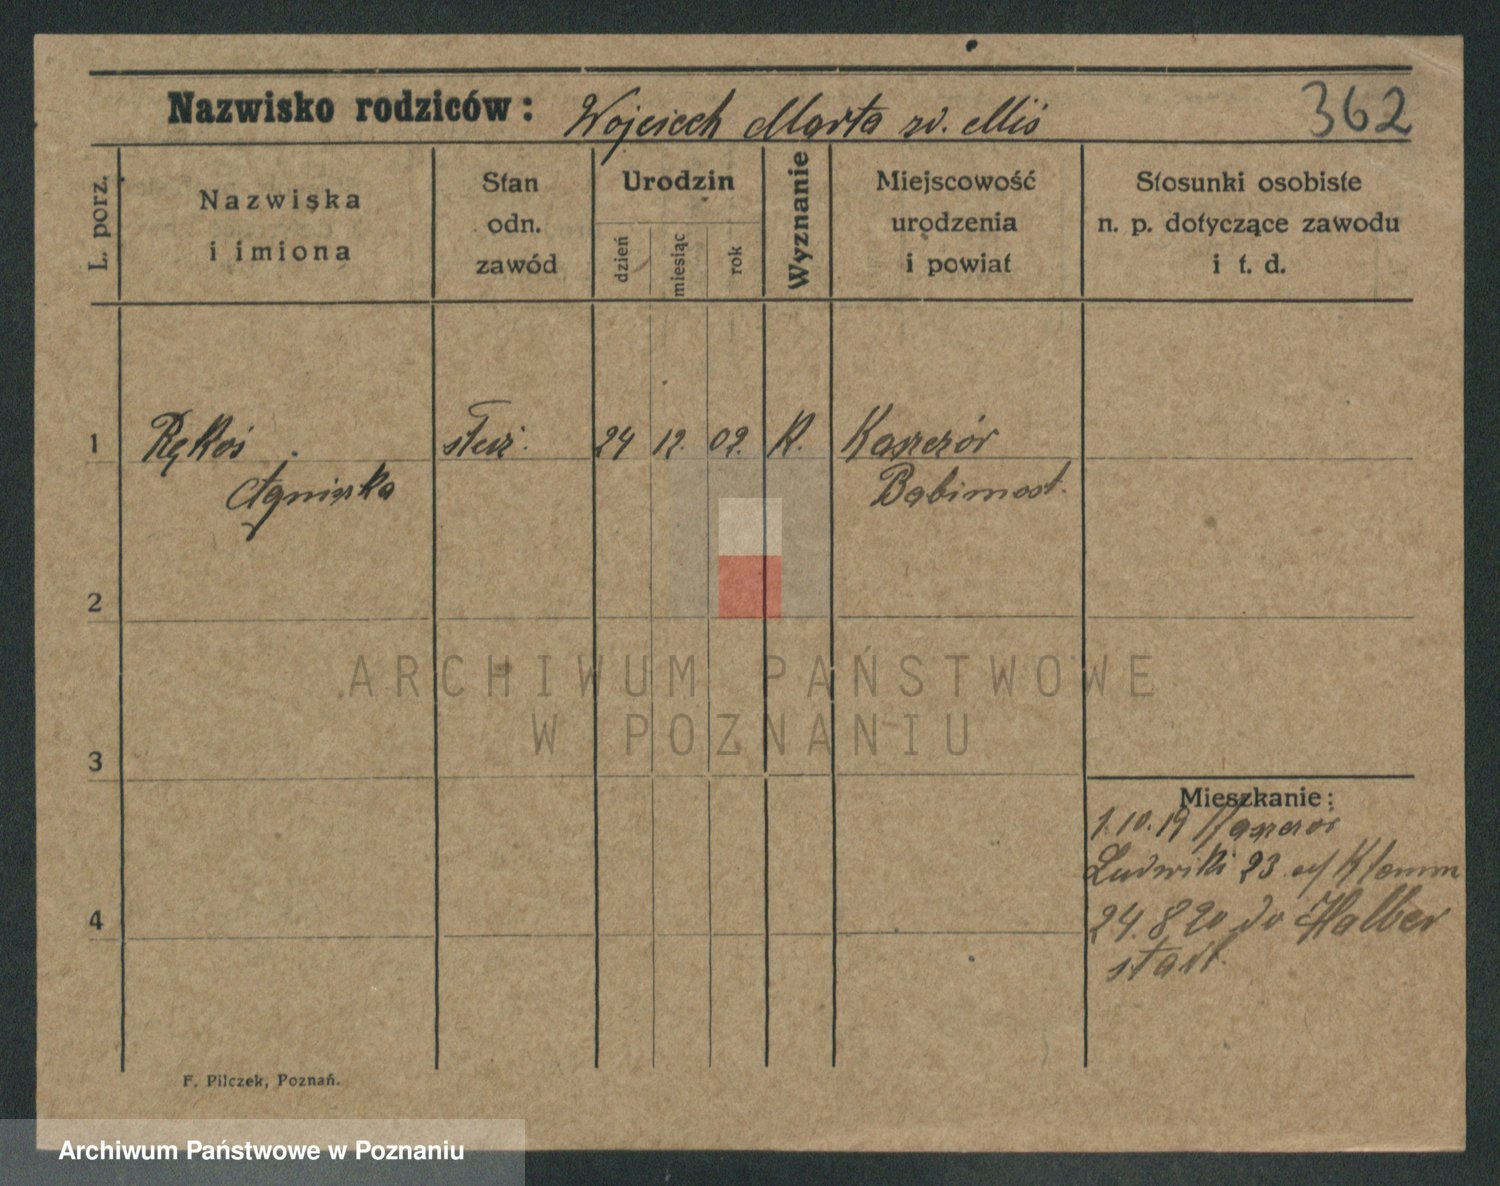 Nazwisko rodziców: Wojciech Marta zd. Miś
362
L. porz.
Nazwiska
i imiona
Stan
odn.
zawód
Urodzin
dzień
miesiąc
rok
Wyznanie
Miejscowość
urodzenia
i powiat
Stosunki osobiste
n. p. dotyczące zawodu
i t. d.
1 Rękoś służ. 24 12. 02. K. Kaszczór
Agnieszka Babimost.
2
3
4
Mieszkanie:
1.10.19 Kaszczór
Ludwiki 23 Klemm
24.8 20 do Halber
stadt.
F. Pilczek, Poznań.
ARCHIWUM PAŃSTWOWE
W POZNANIU
Archiwum Państwowe w Poznaniu